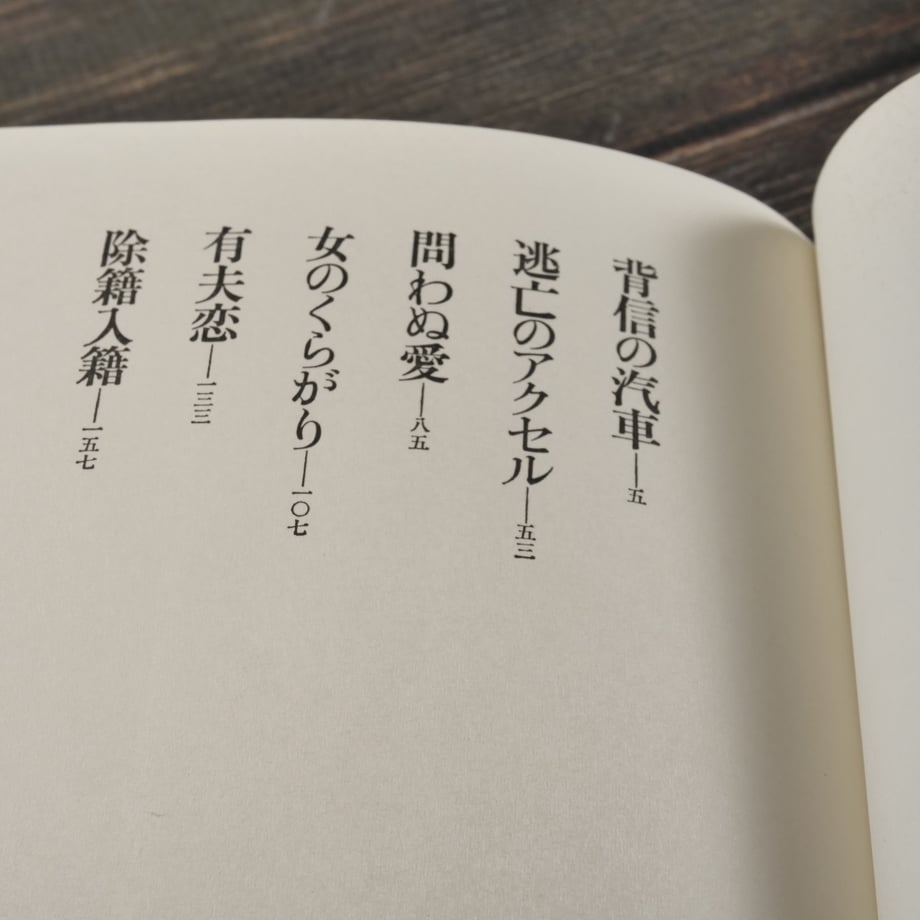 背信の汽車―五
逃亡のアクセル―五三
問わぬ愛―八五
女のくらがり―一〇七
有夫恋―一三三
除籍入籍―一五七